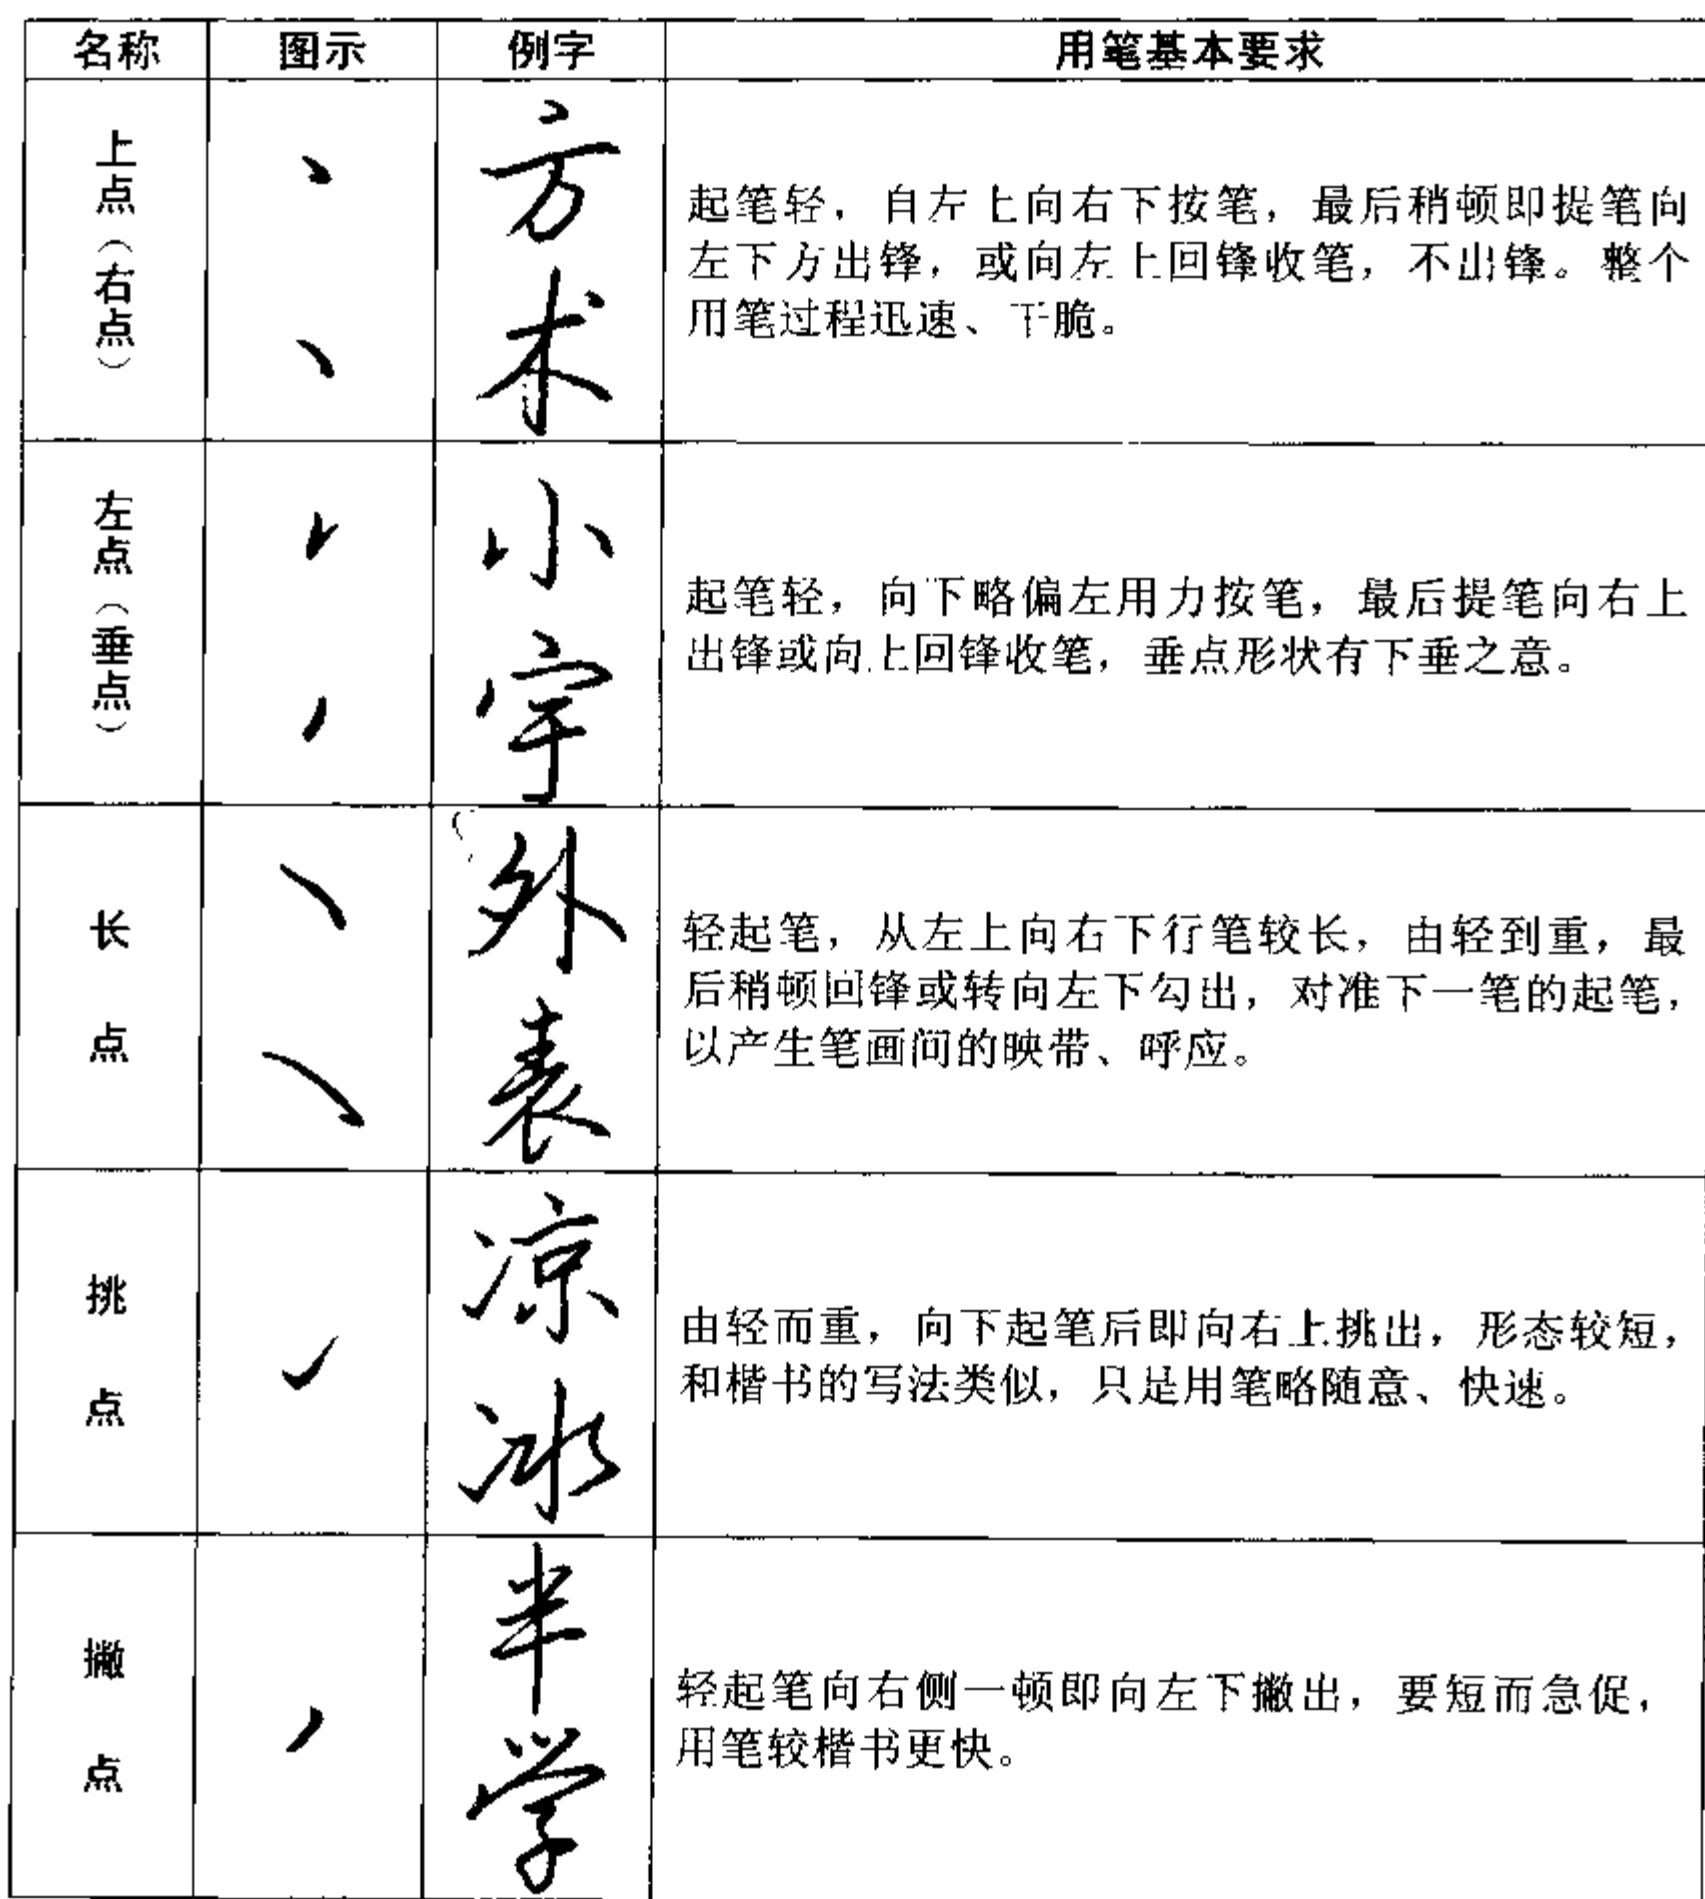 名称 图示 例字 用笔基本要求
上点（右点）
方
术
起笔轻，自左上向右下按笔，最后稍顿即提笔向
左下方出锋，或向左上回锋收笔，不出锋。整个
用笔过程迅速、干脆。
左点（垂点）
小
宇
起笔轻，向下略偏左用力按笔，最后提笔向右上
出锋或向上回锋收笔，垂点形状有下垂之意。
长点
外
袁
轻起笔，从左上向右下行笔较长，由轻到重，最
后稍顿回锋或转向左下勾出，对准下一笔的起笔，
以产生笔画间的映带、呼应。
挑点
凉
冰
由轻而重，向下起笔后即向右上挑出，形态较短，
和楷书的写法类似，只是用笔略随意、快速。
撇点
半
学
轻起笔向右侧一顿即向左下撇出，要短而急促，
用笔较楷书更快。